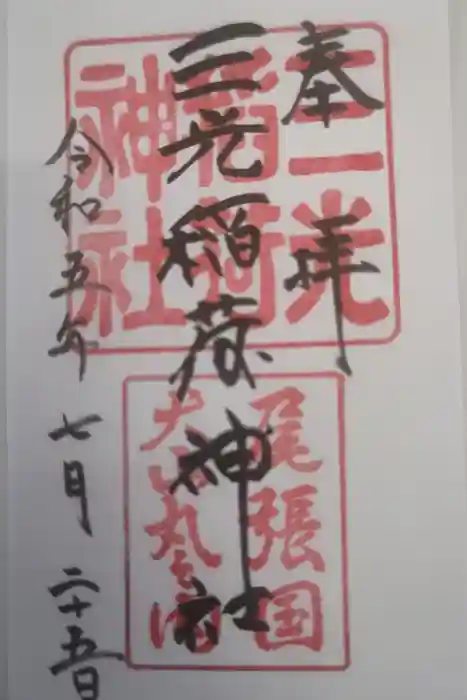 奉拝
三光稲荷神社
令和五年七月二十五日
三光稲荷神社
尾張国
犬山丸之内